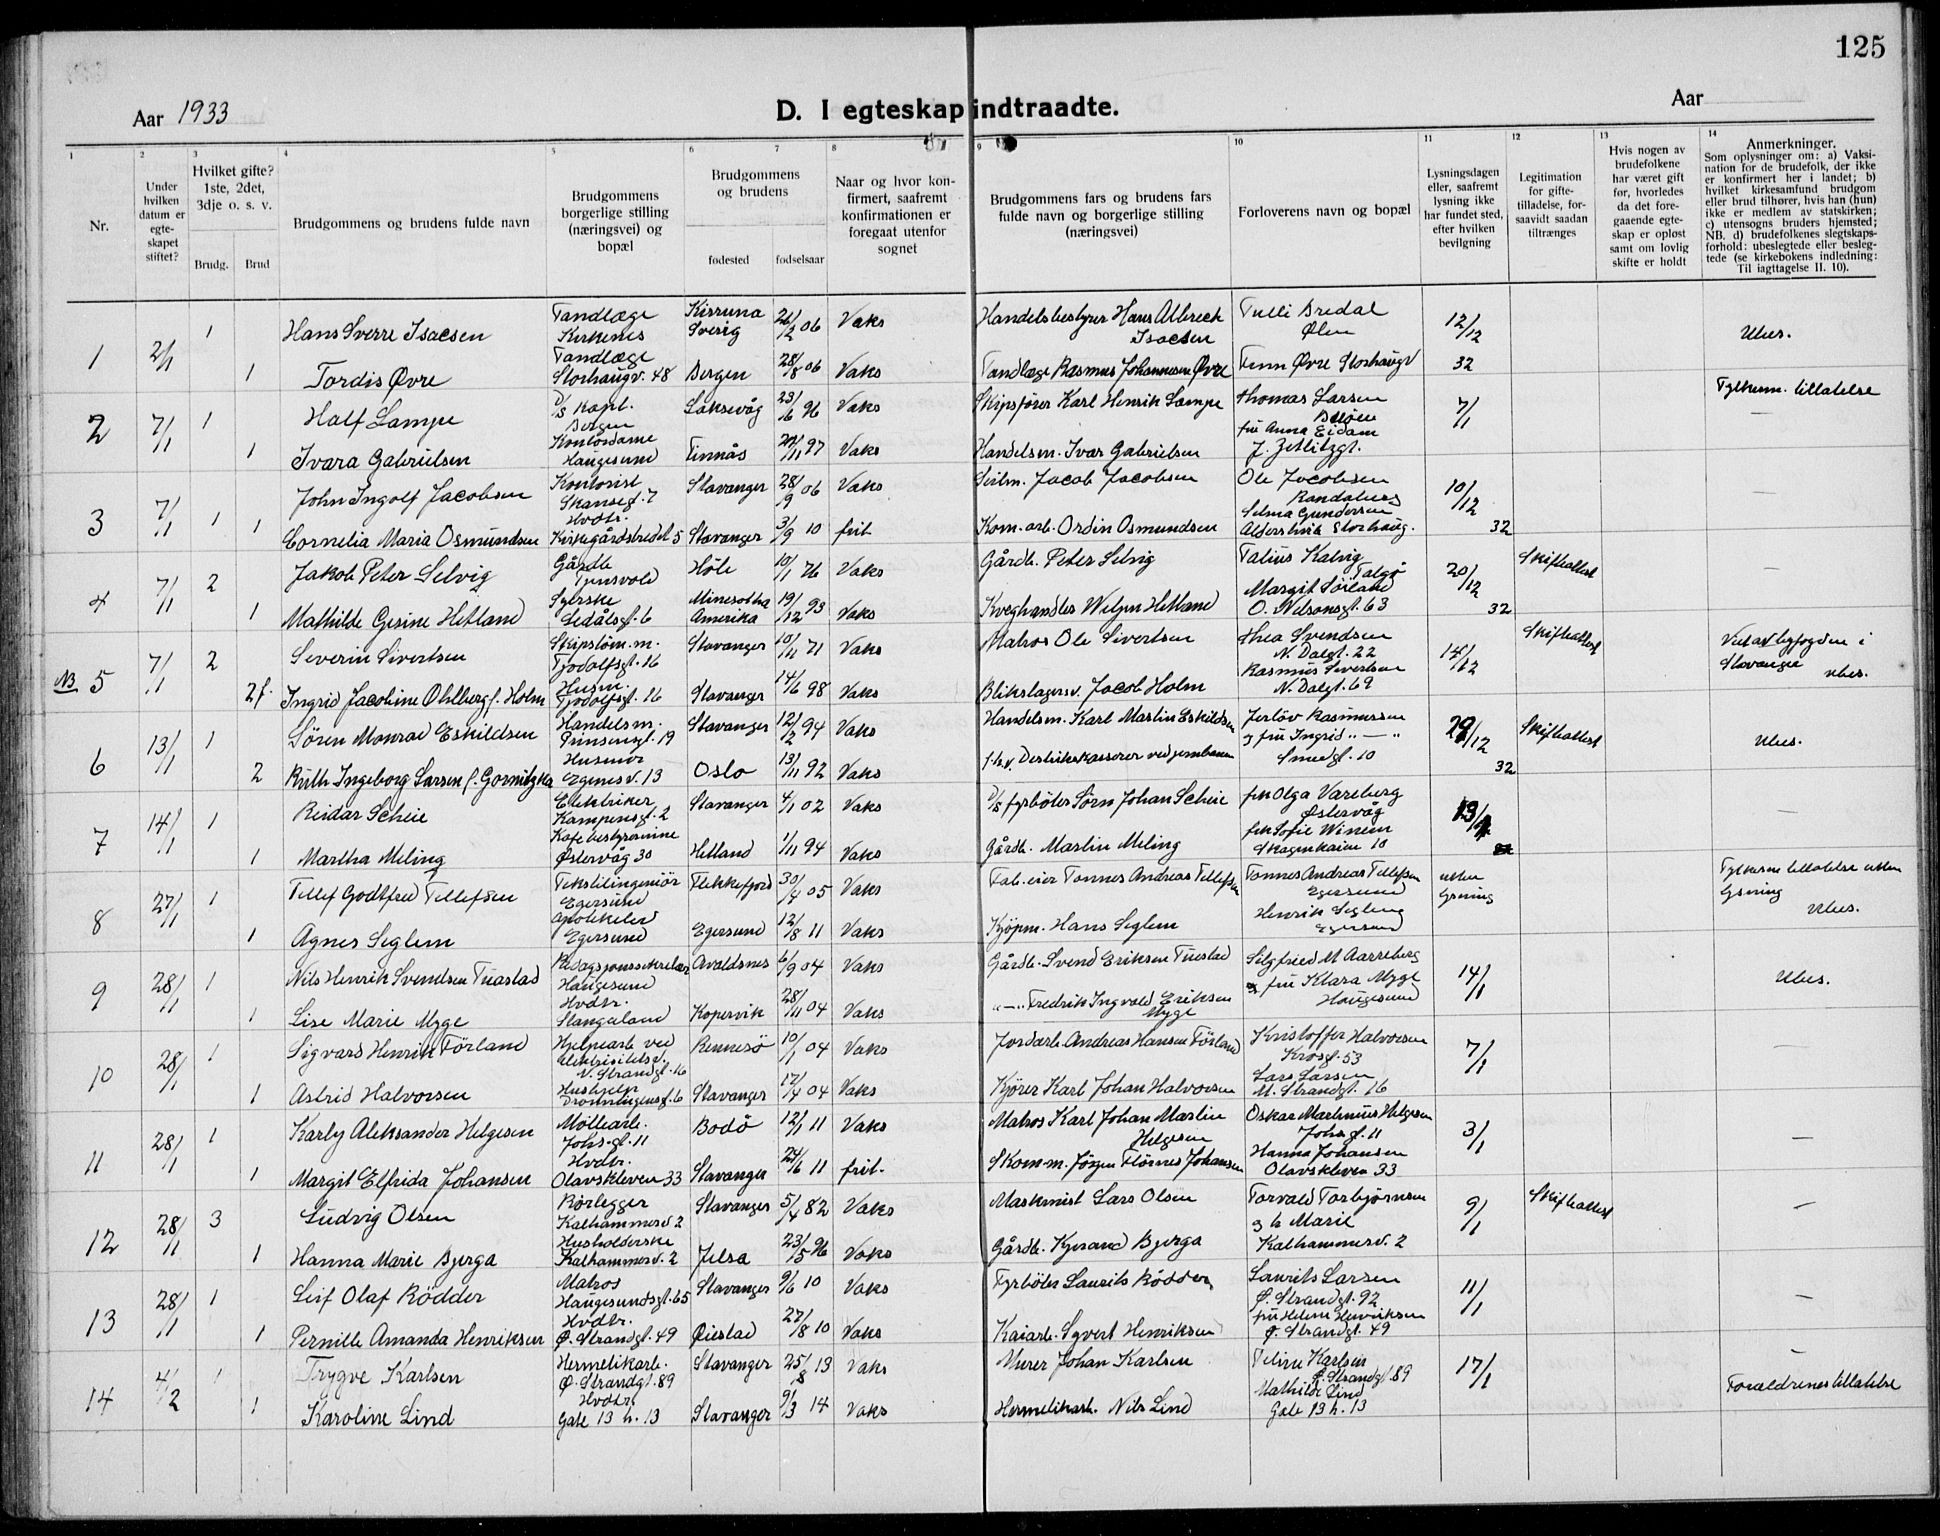 125
Aar 1933
D. I egteskap indtraadte.
Aar
1 2 3 4 5 6 7 8 9 10 11 12 13 14
Nr.
Under hvilken datum er egte-skapet stiftet?
Hvilket gifte? 1ste, 2det, 3dje o. s. v.
Brudg. Brud
Brudgommens og brudens fulde navn
Brudgommens borgerlige stilling (næringsvei) og bopæl
Brudgommens og brudens
fødested fødselsaar
Naar og hvor kon-firmert, saafremt konfirmationen er foregaat utenfor sognet
Brudgommens fars og brudens fars fulde navn og borgerlige stilling (næringsvei)
Forloverens navn og bopæl
Lysningsdagen eller, saafremt lysning ikke har fundet sted, efter hvilken bevilgning
Legitimation for gifte-tilladelse, for-saavidt saadan tiltrænges
Hvis nogen av brudefolkene har været gift før, hvorledes da det fore-gaaende egte-skap er opløst samt om lovlig skifte er holdt
Anmerkninger.
Som oplysninger om: a) Vaksi-nation for de brudefolk, der ikke er konfirmert her i landet; b) hvilket kirkesamfund brudgom eller brud tilhører, hvis han (hun) ikke er medlem av statskirken; c) utensogns bruders hjemsted; NB. d) brudefolkenes slegtskaps-forhold: ubeslegtede eller besleg-tede (se kirkebokens indledning: Til iagttagelse II. 10).
1 2/1 1 Hans Sverre Isacsen Tandlæge Kirkenes Kirruna Sverig 26/2 06 Vaks Handelsbestyrer Hans Albrech Isacsen Tulli Bredal Ølen 12/12 Ubes.
1 Tordis Øvre Tandlæge Storhaugv. 48 Bergen 28/8 06 Vaks Tandlæge Rasmus Johannesen Øvre Finn Øvre Storhaugv 32
2 7/1 1 Half Lampe D/s kapt. Bergen Laksevåg 23/6 96 Vaks Skipsfører Karl Henrik Lampe Thomas Larsen 7/1 Fylkesm. tillatelse
1 Ivara Gabrielsen Kontordame Haugesund Finnås 97 Vaks Handelsm. Ivar Gabrielsen fru Anna Eidam J. Zetlitzgt.
3 7/1 1 John Ingolf Jacobsen Kontorist Skanseg. 7 Stavanger 28/9 06 Vaks Seilm. Jacob Jacobsen Ole Jacobsen Randaberg 10/12 —
1 Cornelia Maria Osmundsen Hvdtr. Kirkegårdsbredet 5 Stavanger 3/9 10 frit Kom. arb. Ordin Osmundsen Selma Gundersen Storhaug. 32
4 7/1 2 Jakob Peter Selvig Gårdb. Høle 10/1 76 Vaks Gårdb. Peter Selvig Talius Kalvig Talgø 20/12 Skifteattest —
1 Mathilde Gesine Hetland Syerske Ledålsg. 6 Minesotha Amerika 19/12 93 Vaks Kveghandler Hetland Margit Sørland O. Nilsonsgt. 63 32
NB 5 7/1 2 Severin Sivertsen Skipstøm. m. Tjodolfsgt. 16 Stavanger 10/11 71 Vaks Matros Ole Sivertsen Thea Svendsen N. Dalgt. 22 14/12 Skifteattest Viet av byfogden i Stavanger ubes.
2 f. Ingrid Jacobine Ohlberg f. Holm Husm. Tjodolfsgt. 16 Stavanger 14/6 98 Vaks Blikslagersv. Jacob Holm Rasmus Sivertsen N. Dalgt. 69
6 13/1 1 Søren Monrad Eskildsen Handelsm. Prinsensgt. 19 Stavanger 12/2 94 Vaks Handelsm. Karl Martin Eskildsen Jerløv Rasmussen og fru Ingrid „ — „ 29/12 Skifteattest Ubes.
2 Ruth Ingeborg Larsen f. Gornitzka Husmor Egenesv. 13 Oslo 13/11 92 Vaks f.h.v. Distriktskasserer ved jernbanen Smedgt. 10 32
7 14/1 1 Reidar Scheie Elektriker Kampensgt. 2 Stavanger 4/1 02 Vaks D/s fyrbøter Sørn Johan Scheie frk Olga Vareberg Østervåg 13/1 —
1 Martha Meling Kafebestyrerinne Østervåg 30 Hetland 1/11 94 Vaks Gårdb. Martin Meling frk Sofie Skagenkaien 10
8 27/1 1 Tellef Godtfred Tellefsen Tekstilingeniør Egersund Flekkefjord 30/4 05 Vaks Fab. eier Tønnes Andreas Tellefsen Tønnes Andreas Tellefsen Egersund uten lysning Fylkesm tillatelse uten lysning Ubes.
1 Agnes Seglem Egersund Egersund 12/8 11 Vaks Kjøpm. Hans Seglem Henrik Seglem Egersund
9 28/1 1 Nils Henrik Svendsen Tuastad Redaksjonssekretær Haugesund Avaldsnes 6/9 04 Vaks Gårdb. Svend Eriksen Tuastad Sigfried M Aarreberg 14/1 Ubes.
1 Lise Marie Myge Hvdtr. Stangeland Kopervik 28/11 04 Vaks „—„ Fredrik Ingvald Eriksen Myge fru Klara Myge Haugesund
10 28/1 1 Sigvard Henrik Førland Hjelpearb. ved elektrisitetsv. N. Strandgt. 16 Rennesø 10/1 04 Vaks Jordarb. Andreas Hansen Førland Kristoffer Halvorsen Krosgt. 53 7/1 —
1 Astrid Halvorsen Hushjelp Dronningensgt. 6 Stavanger 17/4 04 Vaks Kjører Karl Johan Halvorsen Lars Larsen N. Strandgt. 16
11 28/1 1 Karly Aleksander Helgesen Møllearb. Johs. gt. 11 Bodø 12/1 11 Vaks Matros Karl Johan Martin Helgesen Oskar Martinius Helgesen Johs gt. 11 3/1 —
1 Margit Elfrida Johansen Hvdtr. Olavskleven 33 Stavanger 24/6 11 frit. Skom. m. Jørgen Johansen Hanna Johansen Olavskleven 33
12 28/1 3 Ludvig Olsen Rørlegger Kalhammersv. 2 Stavanger 5/4 82 Vaks Maskinist Lars Olsen Torvald Torbjørnsen og h Marie Kalhammersv. 2 9/1 Skifteattest —
1 Hanna Marie Bjerga Husholderske Kalhammersv. 2 Jelsa 23/5 96 Vaks Gårdb. Kjerand Bjerga
13 28/1 1 Leif Olaf Rödder Matros Haugesundsgt. 65 Stavanger 9/6 10 Vaks Fyrbøter Laurits Rödder Laurits Larsen Ø. Strandgt. 92 11/1 —
1 Pernille Amanda Henriksen Hvdtr. Ø. Strandgt. 49 Øiestad 27/8 10 Vaks Kaiarb. Syvert Henriksen fru Helene Henriksen Ø. Strandgt. 49
14 4/2 1 Trygve Karlsen Hermetikarb. Ø. Strandgt. 89 Stavanger 25/8 13 Vaks Murer Johan Karlsen Teline Karlsen Ø. Strandgt. 89 17/1 —
1 Karoline Lind Hvdtr. Gate 13 h. 13 Stavanger 9/3 14 Vaks Hermetikarb. Nils Lind Mathilde Lind Gate 13 h. 13 Foreldrenes tillatelse